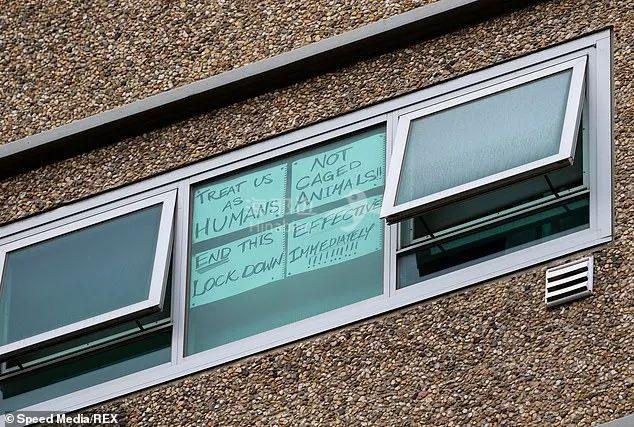 TREAT US
AS
HUMANS
NOT
CAGED
ANIMALS!!
END THIS
LOCK DOWN
EFFECTIVE
IMMEDIATELY
!!!!!!!!!!
© Speed Media/REX